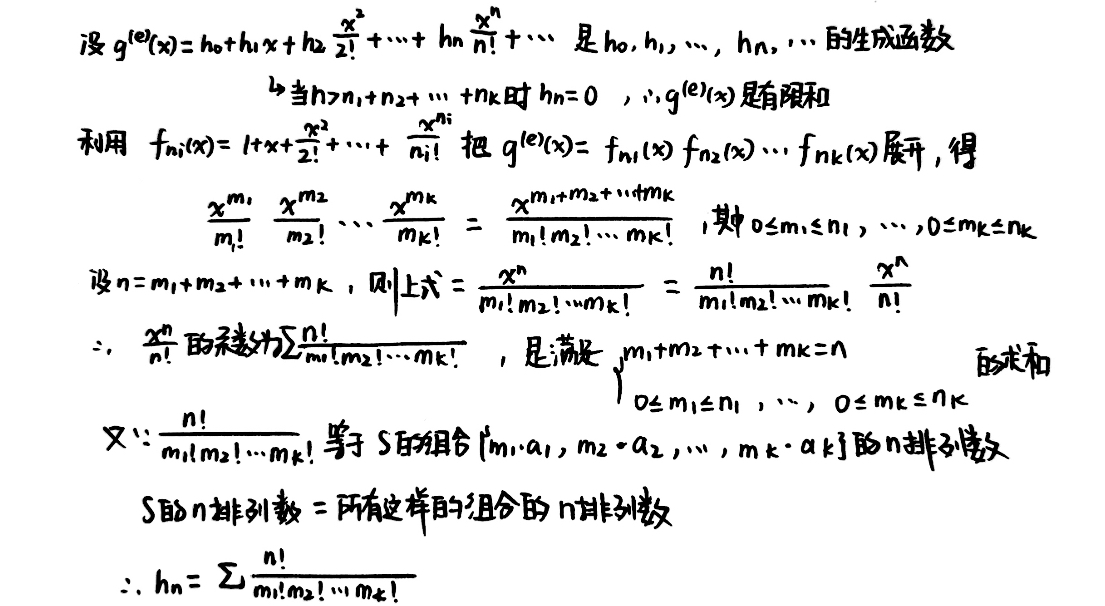 设 g⁽ᵉ⁾(x)=h₀+h₁x+h₂ x²/2! +⋯+ hₙ xⁿ/n! +⋯ 是 h₀,h₁,⋯, hₙ,⋯ 的生成函数
↳当n>n₁+n₂+⋯+nₖ时 hₙ=0 ,∴g⁽ᵉ⁾(x)是有限和
利用 f_{n_i}(x)=1+x+x²/2!+⋯+ x^{n_i}/n_i! 把 g⁽ᵉ⁾(x)= f_{n₁}(x) f_{n₂}(x)⋯f_{nₖ}(x)展开,得
x^{m₁}/m₁! x^{m₂}/m₂! ⋯ x^{mₖ}/mₖ! = x^{m₁+m₂+⋯+mₖ}/(m₁!m₂!⋯mₖ!) ,其中0≤m₁≤n₁,⋯,0≤mₖ≤nₖ
设n=m₁+m₂+⋯+mₖ,则上式= xⁿ/(m₁!m₂!⋯mₖ!) = n!/(m₁!m₂!⋯mₖ!) xⁿ/n!
∴ xⁿ/n! 的系数为∑ n!/(m₁!m₂!⋯mₖ!) ,是满足 { m₁+m₂+⋯+mₖ=n 的求和
0≤m₁≤n₁,⋯, 0≤mₖ≤nₖ
又∵ n!/(m₁!m₂!⋯mₖ!) 等于 S的组合{m₁·a₁, m₂·a₂,⋯, mₖ·aₖ}的n排列数
S的n排列数=所有这样的组合的n排列数
∴ hₙ= ∑ n!/(m₁!m₂!⋯mₖ!)